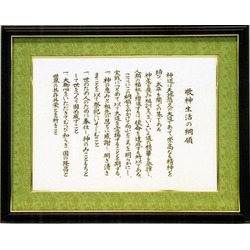 敬神生活の綱領
神道は天地悠久の大道であって崇高なる精神を
培ひ太平を開くの基である
神慮を畏み祖訓をつぎいよいよ道の精華を発揮し
人類の福祉を増進するは使命を達成する所以である
ここにこの綱領をかかげて向ふところを明らかにし
実践につとめて以て大道を宣揚することを期する
一、神の恵みと祖先の恩とに感謝し明き清き
まことを以て祭祀にいそしむこと
一、世のため人のために奉仕し神のみこともちと
して世をつくり固め成すこと
一、大御心をいただきてむつび和らぎ国の隆昌と
世界の共存共栄とを祈ること